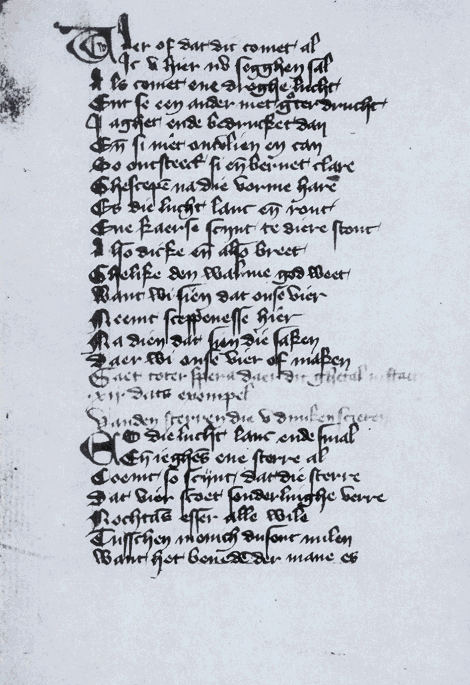 Waer of dat dit comet al
Ic v hier nv segghen sal
Als comet ene droghe lucht
Ent se een ander met groter drucht
Jaghet ende bedrucket dan
Eñ si niet ontvlien en can
So ontsteect si eñ bernet clare
Ghescepē na die vorme hare
Es die lucht lanc eñ ront
Ene kaerse scijnt te diere stont
Also dicke eñ also breet
Ghelike den walme god weet
Want wi sien dat onse vier
Neemt sceppenesse hier
Na dien dat sien die saken
Daer wi onse vier of maken
Gaet toter spera daer dit ghetal
xij dats exempel
Vanden sterren die v dunken scieten
So die lucht lanc ende smal
Eñ ieghēs ene sterre al
Coemt so scijnt dat die sterre
Dat vier scoet sonderlinghe verre
Nochtās esser alle wile
Tusschen menich dusont milen
Want het benedē der mane es